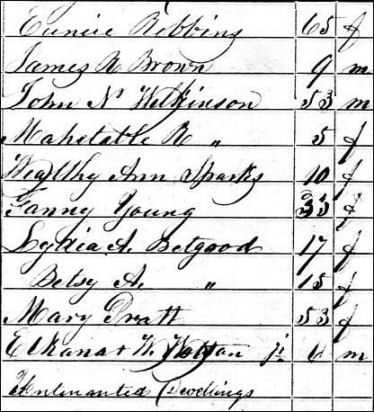 Eunice Robbins 65 f
James R Brown 9 m
John N Wilkinson 53 m
Mahetable R " 5 f
Wealthy Ann Sparks 10 f
Fanny Young 35 f
Lydia A. Betgood 17 f
Betsy A. " 15 f
Mary Pratt 53 f
Elkanah W. jr 6 m
Untenanted Dwellings